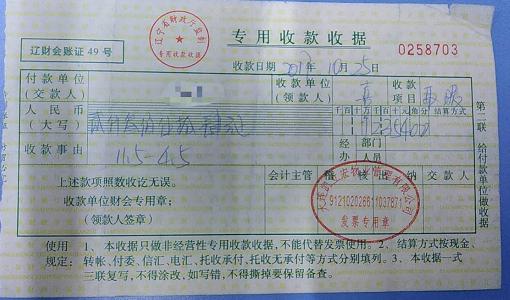 辽宁省财政厅监制
专用收款收据
辽财会账证49号
专用收款收据
0258703
收款日期 10月25日
付款单位
(交款人)
收款单位
(领款人)
收款
项目
人民币
(大写)
千百十万千百十元角分
结算方式
收款事由
11.5-4.5
经 部门
办 人员
上述款项照数收讫无误。
收款单位财会专用章:
(领款人签章)
会计主管
稽核
出纳
交款人
912102026611037871
发票专用章
第二联 给付款单位做收据
使用规定
1、本收据只做非经营性专用收款收据,不能代替发票使用。2、结算方式按现金、
转帐、付委、信汇、电汇、托收承付、托收无承付等方式分别填列。3、本收据一式
三联复写,不得涂改,如写错,不得撕掉要保留备查。